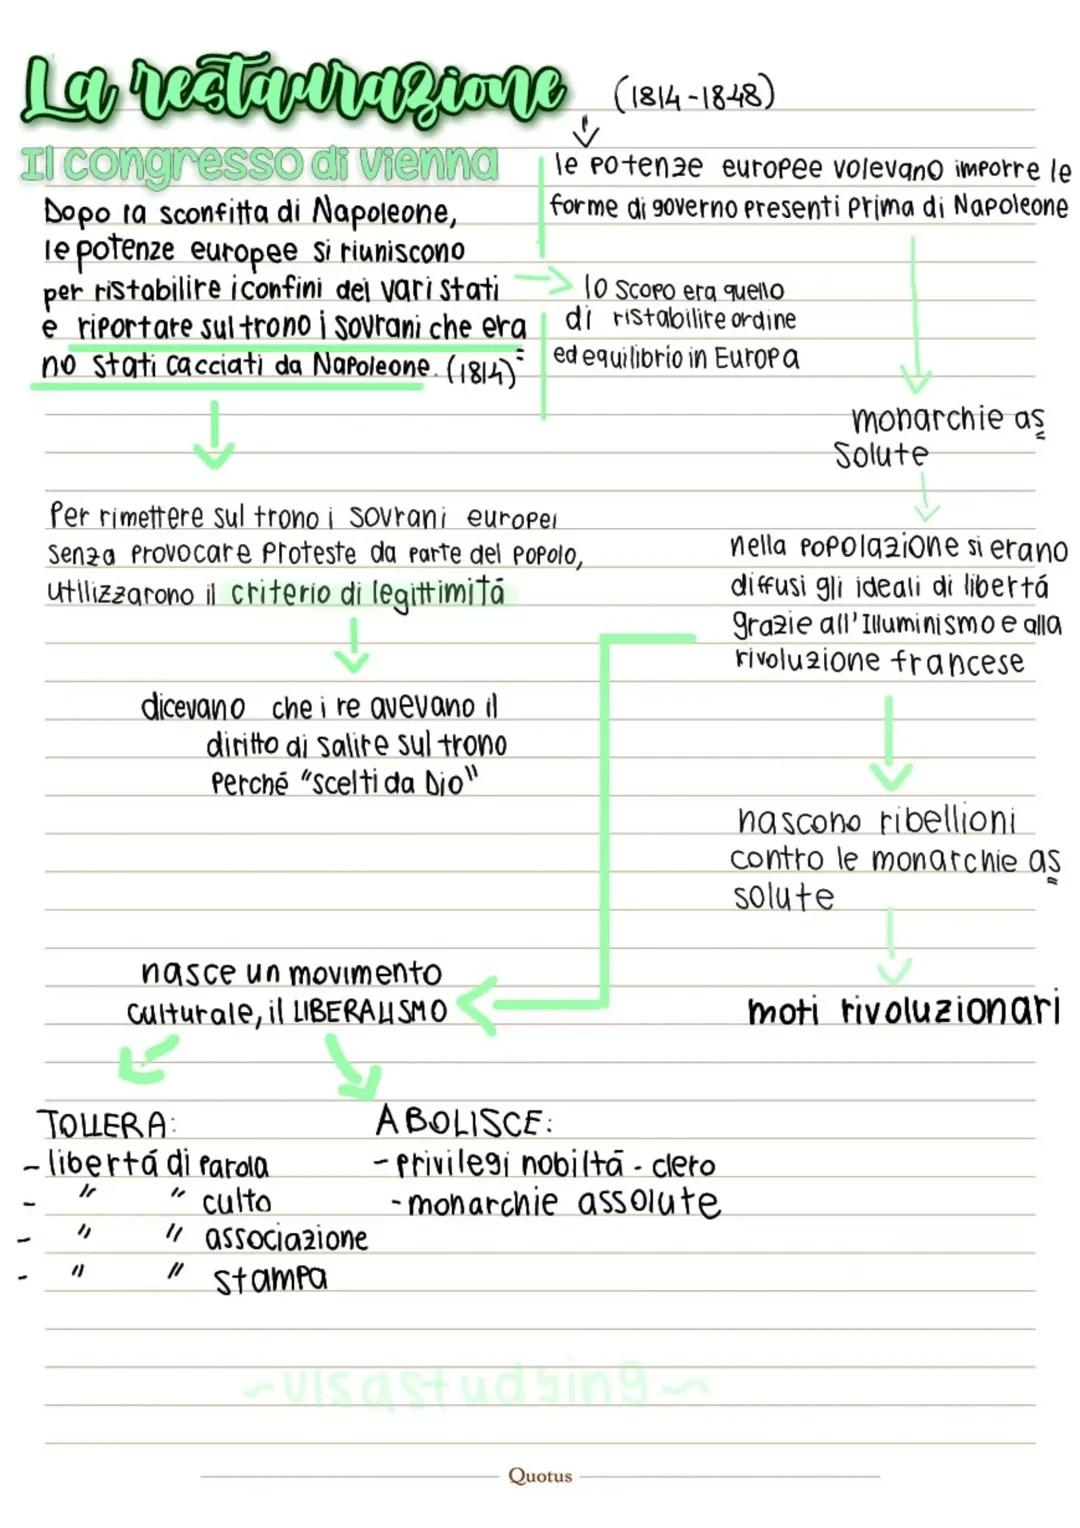 La restaurazione (1814-1848)
Il congresso di vienna
le potenze europee volevano imporre le
forme di governo presenti prima di Napoleone
Dopo la sconfitta di Napoleone,
le potenze europee si riuniscono
per ristabilire i confini dei vari stati
e riportare sul trono i sovrani che era
no stati cacciati da Napoleone. (1814)
lo scopo era quello
di ristabilire ordine
ed equilibrio in Europa
monarchie as
solute
Per rimettere sul trono i sovrani europei
senza provocare proteste da parte del popolo,
utilizzarono il criterio di legittimitá
nella popolazione si erano
diffusi gli ideali di libertá
grazie all'Illuminismo e alla
rivoluzione francese
dicevano che i re avevano il
diritto di salire sul trono
perché "scelti da Dio"
nascono ribellioni
contro le monarchie as
solute
nasce un movimento
culturale, il LIBERALISMO
moti rivoluzionari
TOLLERA:
- libertá di parola
- " " culto
- " " associazione
- " " stampa
ABOLISCE:
- privilegi nobiltá - clero
- monarchie assolute
~visastudying~
Quotus